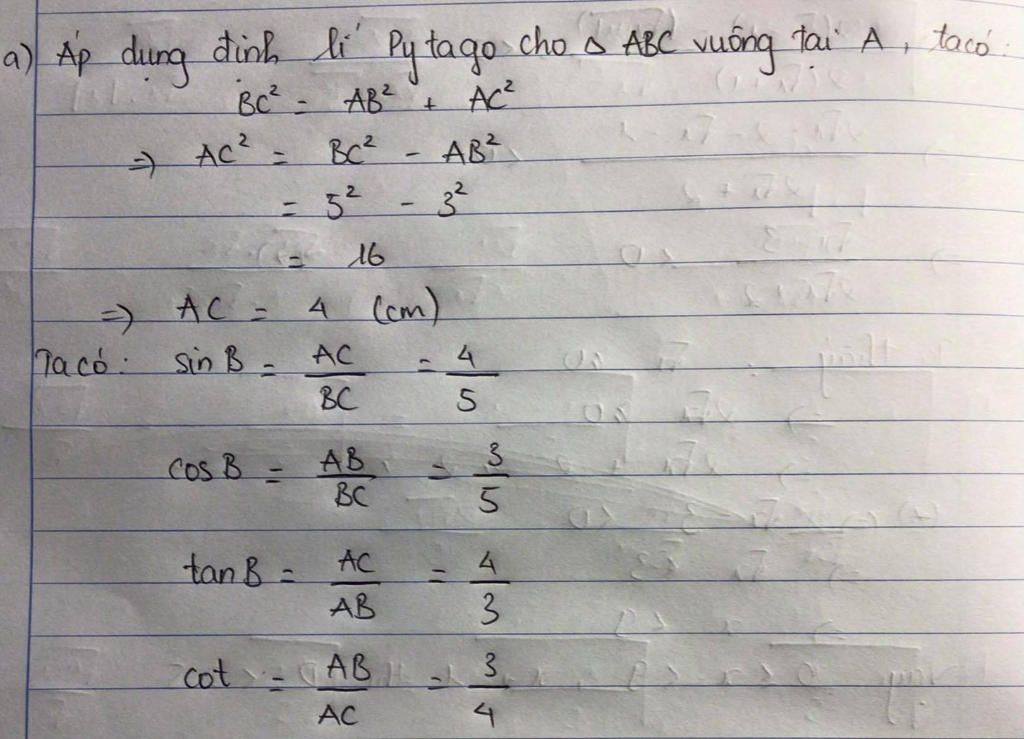 a) Áp dụng định lí Pytago cho Δ ABC vuông tại A, ta có:
BC² = AB² + AC²
=> AC² = BC² - AB²
= 5² - 3²
= 16
=> AC = 4 (cm)
Ta có: sin B = AC/BC = 4/5
cos B = AB/BC = 3/5
tan B = AC/AB = 4/3
cot = AB/AC = 3/4